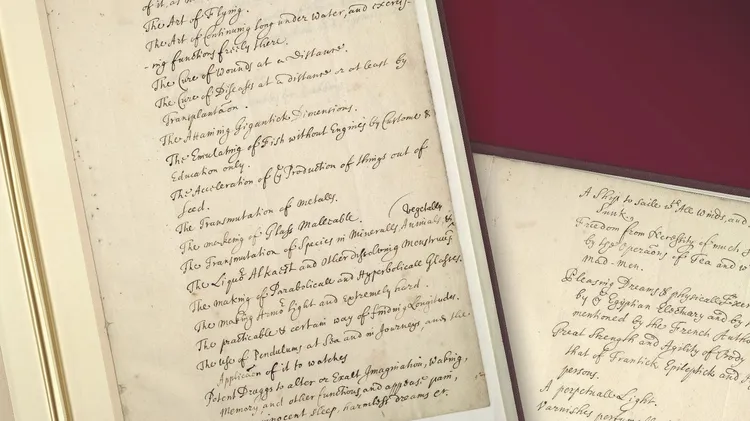 of it, as
The Art of Flying.
The Art of Continuing long under Water, and exercis-
-ing functions freely there.
The Cure of Wounds at a Distance.
The Cure of Diseases at a distance or at least by
Transplantation.
The Attaining Gigantick Dimensions.
The Emulating of Fish without Engines by Custome &
Education only.
The Acceleration of ye Production of things out of
Seed.
The Transmutation of Metalls.
The makeing of Glass Maleable.
Vegetables
The Transmutation of Species in Mineralls, Animals, &
The Liquid Alkaest and Other dissolving Menstruums
The making of Parabolicall and Hyperbolicall Glasses.
The making Armor light and extremely hard.
The practicable & certain way of finding Longitudes.
The use of Pendulums at Sea and in Journeys, and the
Application of it to watches
Potent Druggs to alter or Exalt Imagination, Waking,
Memory, and other functions, and appease pain,
innocent sleep, harmless dreams etc.
A Ship to saile wth All Winds, and
Sunk.
Freedom from Necessity of much S
by the Operations of Tea and w
Mad-men.
Pleasing Dreams & physicall Exer
by ye Egyptian Electuary and by
mentioned by the French Autho
Great Strength and Agility of Body
that of Frantick Epilepticks and
persons.
A perpetuall Light.
Varnishes perfum